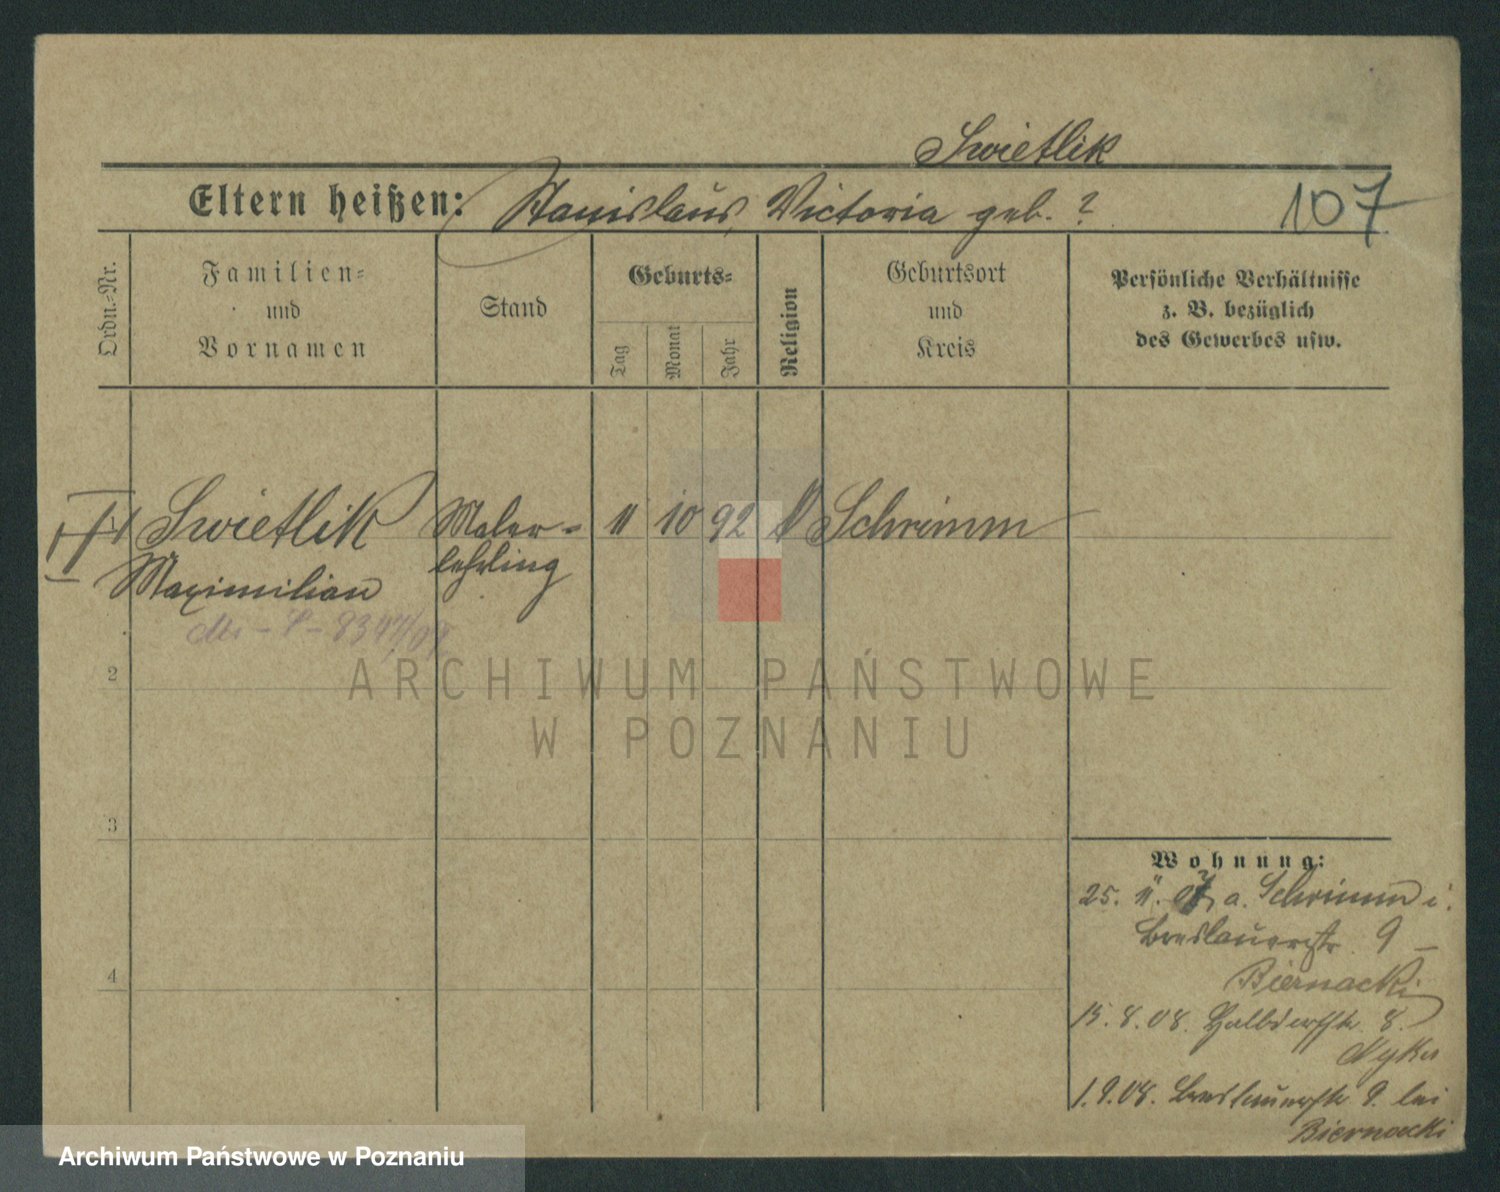 Swietlik
Eltern heißen: Stanislaus, Victoria geb. ?
107
Ordn.-Nr.
Familien-
und
Vornamen
Stand
Geburts-
Tag
Monat
Jahr
Religion
Geburtsort
und
Kreis
Persönliche Verhältnisse
z. B. bezüglich
des Gewerbes usw.
Swietlik
Maximilian
Maler-
lehrling
11 10 92
Schrimm
2
3
4
Wohnung:
25. 11. 07 a. Schrimm i.
Breslauerstr. 9
Biernacki
15. 8. 08. Halbdorfstr. 8.
1. 9. 08. Breslauerstr 9. bei
Biernacki
ARCHIWUM PAŃSTWOWE
W POZNANIU
Archiwum Państwowe w Poznaniu